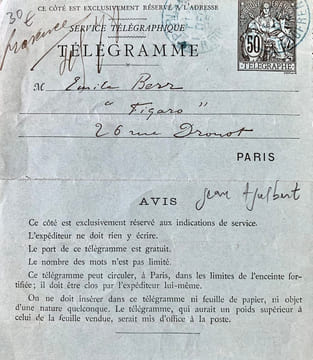 CE CÔTÉ EST EXCLUSIVEMENT RÉSERVÉ A L'ADRESSE
SERVICE TÉLÉGRAPHIQUE
TÉLÉGRAMME
50
TÉLÉGRAPHE
M Emile Berr
"Figaro"
26 rue Drouot
PARIS
AVIS
Ce côté est exclusivement réservé aux indications de service.
L'expéditeur ne doit rien y écrire.
Le port de ce télégramme est gratuit.
Le nombre des mots n'est pas limité.
Ce télégramme peut circuler, à Paris, dans les limites de l'enceinte for-
tifiée; il doit être clos par l'expéditeur lui-même.
On ne doit insérer dans ce télégramme ni feuille de papier, ni objet
d'une nature quelconque. Le télégramme, qui aurait un poids supérieur à
celui de la feuille vendue, serait mis d'office à la poste.